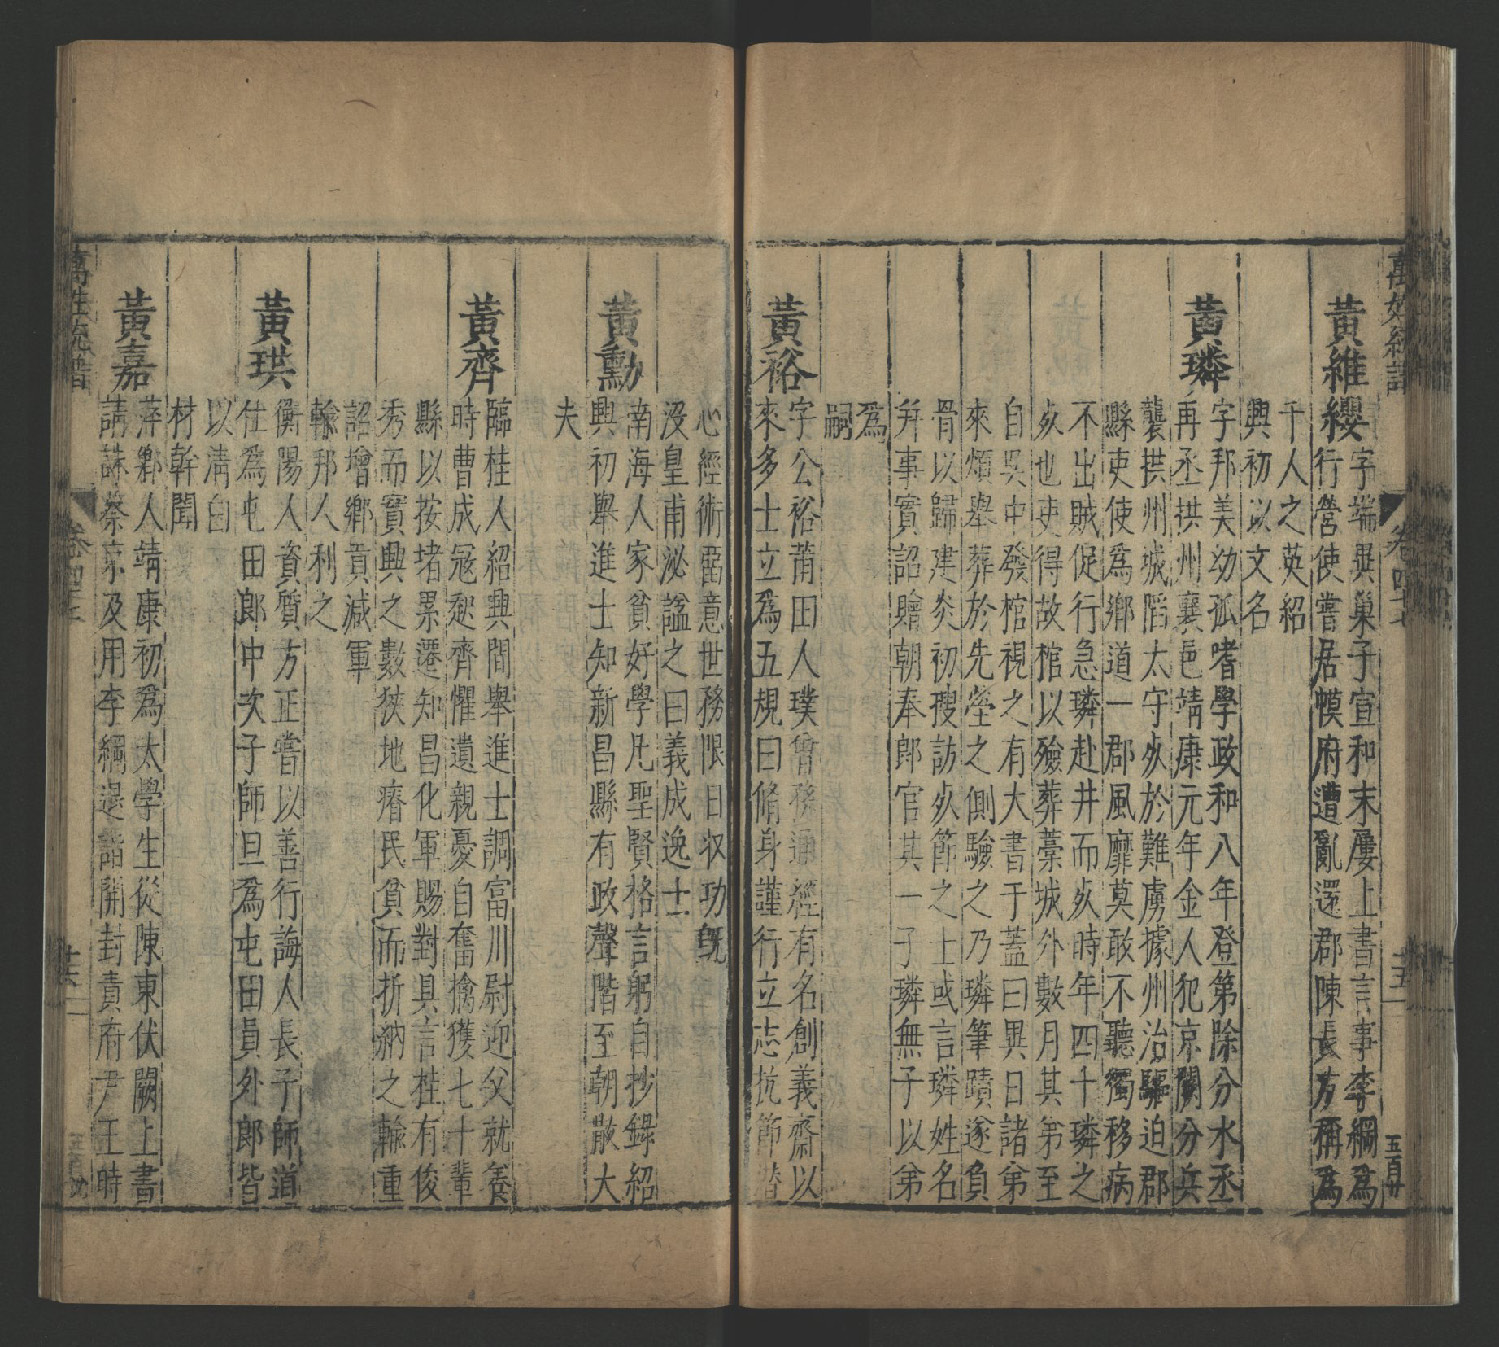 萬姓統譜
卷四十七
十五
五百廿
黃維纓字端㒸巢子宣和末屢上書言事李綱為
行營使嘗居幙府遭亂還郡陳長方稱為
千人之英紹
興初以文名
黃璘字邦美幼孤嗜學政和八年登第除分水丞
再丞拱州襄邑靖康元年金人犯京闕分兵
襲拱州城陷太守死於難虜據州治驅迫郡
縣吏使為鄉道一郡風靡莫敢不聽獨移病
不出賊促行急璘赴井而死時年四十璘之
死也吏得故棺以殮葬藁城外數月其第至
自吳中發棺視之有大書于蓋曰異日諸第
來煩舉葬於先塋之側驗之乃璘筆蹟遂負
骨以歸建炎初搜訪死節之士或言璘姓名
幷事實詔贍朝奉郎官其一子璘無子以第
為
嗣
黃裕字公裕莆田人璞曾孫通經有名創義齋以
來多士立為五規曰脩身謹行立志抗節潛
心經術畱意世務限日収功旣
沒皇甫泌諡之曰義成逸士
黃勳南海人家貧好學凡聖賢格言躬自抄錄紹
興初舉進士知新昌縣有政聲階至朝散大
夫
黃齊臨桂人紹興間舉進士調富川尉迎父就養
時曹成冦迯齊懼遺親憂自奮擒獲七十輩
縣以按堵累遷知昌化軍賜對具言桂有俊
秀而賓興之數狹地瘠民貧而折納之輸重
詔增鄉貢減軍
輸邦人利之
黃珙衡陽人資質方正嘗以善行誨人長子師道
仕為屯田郎中次子師旦為屯田員外郎皆
以清白
材幹聞
黃嘉萍鄉人靖康初為太學生從陳東伏闕上書
請誅蔡京及用李綱退詣開封責府尹王時
萬姓統譜
卷四十七
十六